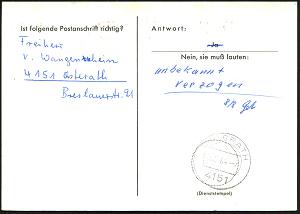 Ist folgende Postanschrift richtig?
Freiherr
v. Wangenheim
4151 Osterath
Breslauerstr. 21
Antwort:
Ja
Nein, sie muß lauten:
unbekannt
verzogen
ERATH
4151
(Dienststempel)